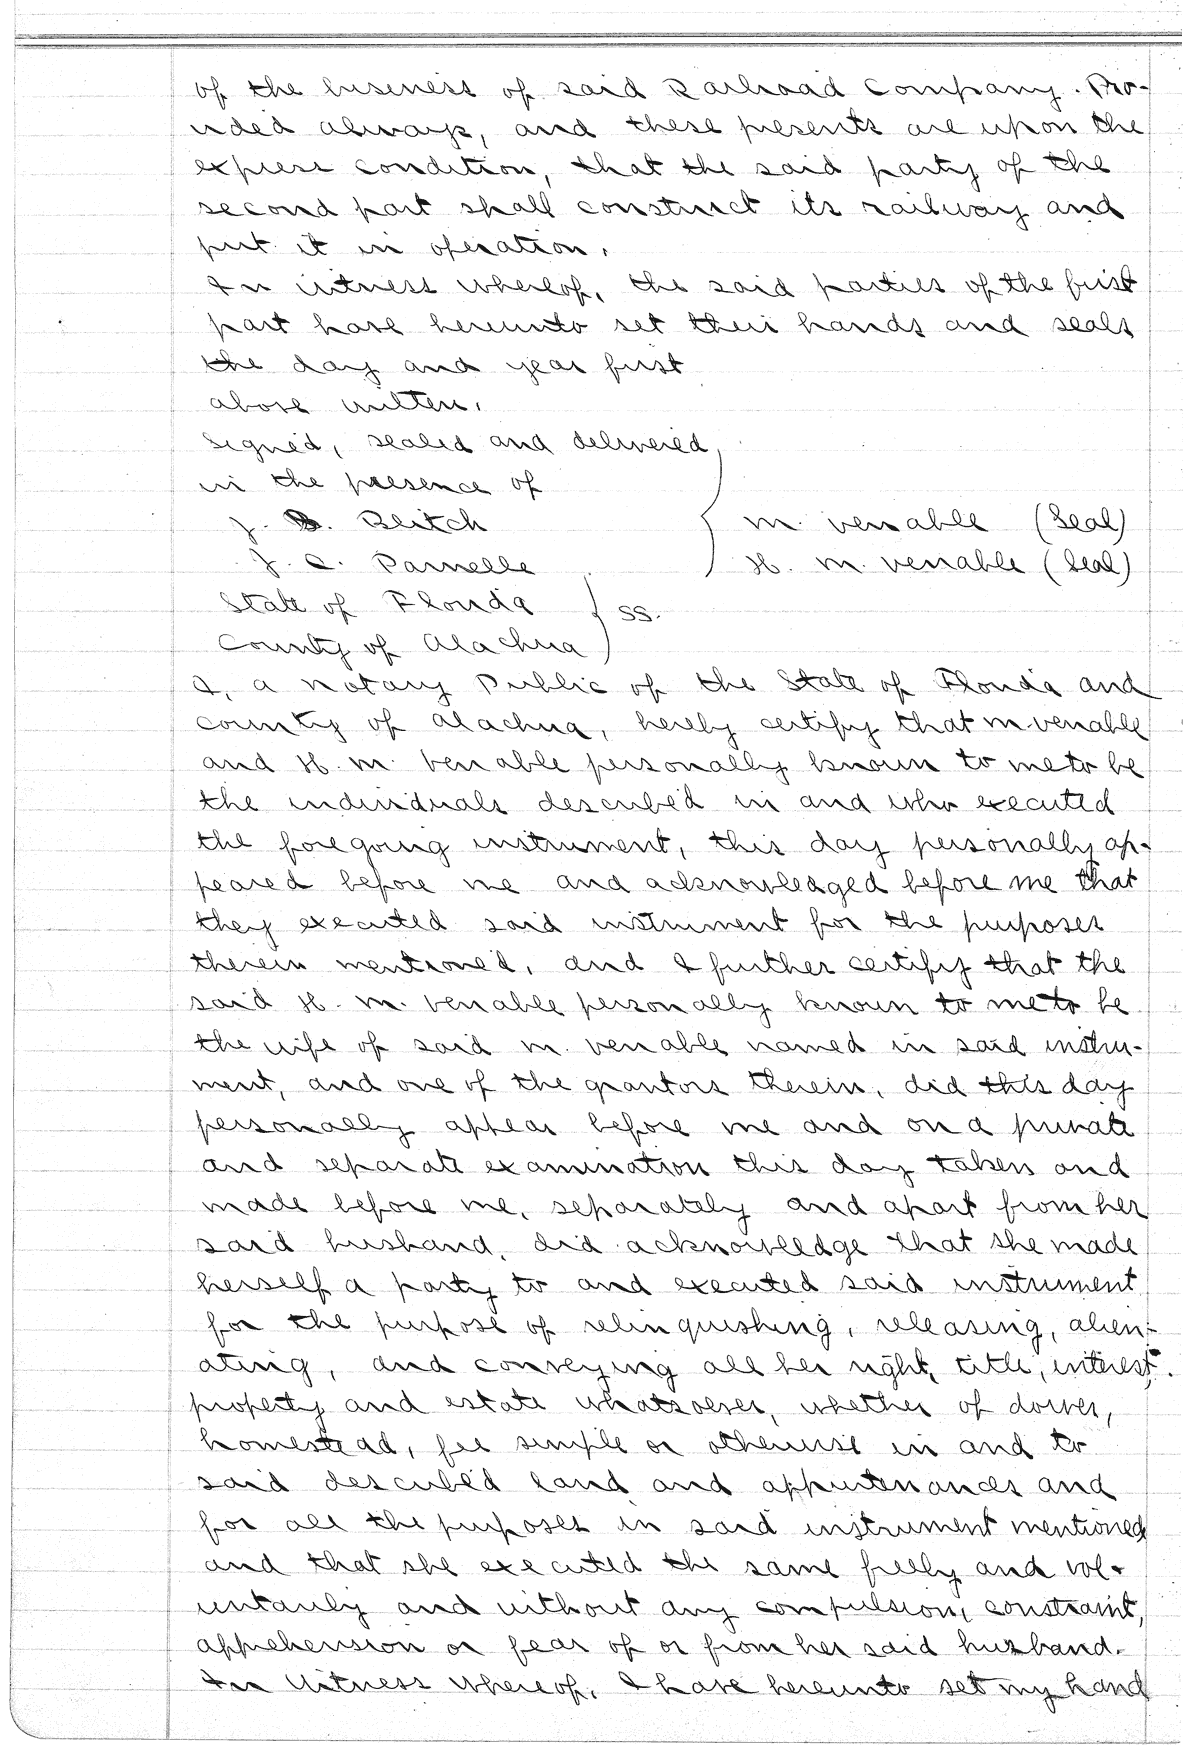 of the business of said Railroad Company. Pro-
vided always, and these presents are upon the
express condition, that the said party of the
second part shall construct its railway and
put it in operation.
In witness whereof, the said parties of the first
part have hereunto set their hands and seals
the day and year first
above written.
Signed, sealed and delivered
in the presence of
J. B. Blitch } M. Venable (Seal)
J. C. Parnelle H. M. Venable (Seal)
State of Florida } SS.
County of Alachua
I, a Notary Public of the State of Florida and
county of Alachua, hereby certify that M. Venable
and H. M. Venable personally known to me to be
the individuals described in and who executed
the foregoing instrument, this day personally ap-
peared before me and acknowledged before me that
they executed said instrument for the purposes
therein mentioned, and I further certify that the
said H. M. Venable personally known to me to be
the wife of said M. Venable named in said instru-
ment, and one of the grantors therein, did this day
personally appear before me and on a private
and separate examination this day taken and
made before me, separately and apart from her
said husband, did acknowledge that she made
herself a party to and executed said instrument
for the purpose of relinquishing, releasing, alien-
ating, and conveying all her right, title, interest.
property and estate whatsoever, whether of dower,
homestead, fee simple or otherwise in and to
said described land and appurtenances and
for all the purposes in said instrument mentioned
and that she executed the same freely and vol-
untarily and without any compulsion, constraint,
apprehension or fear of or from her said husband.
In Witness whereof, I have hereunto set my hand